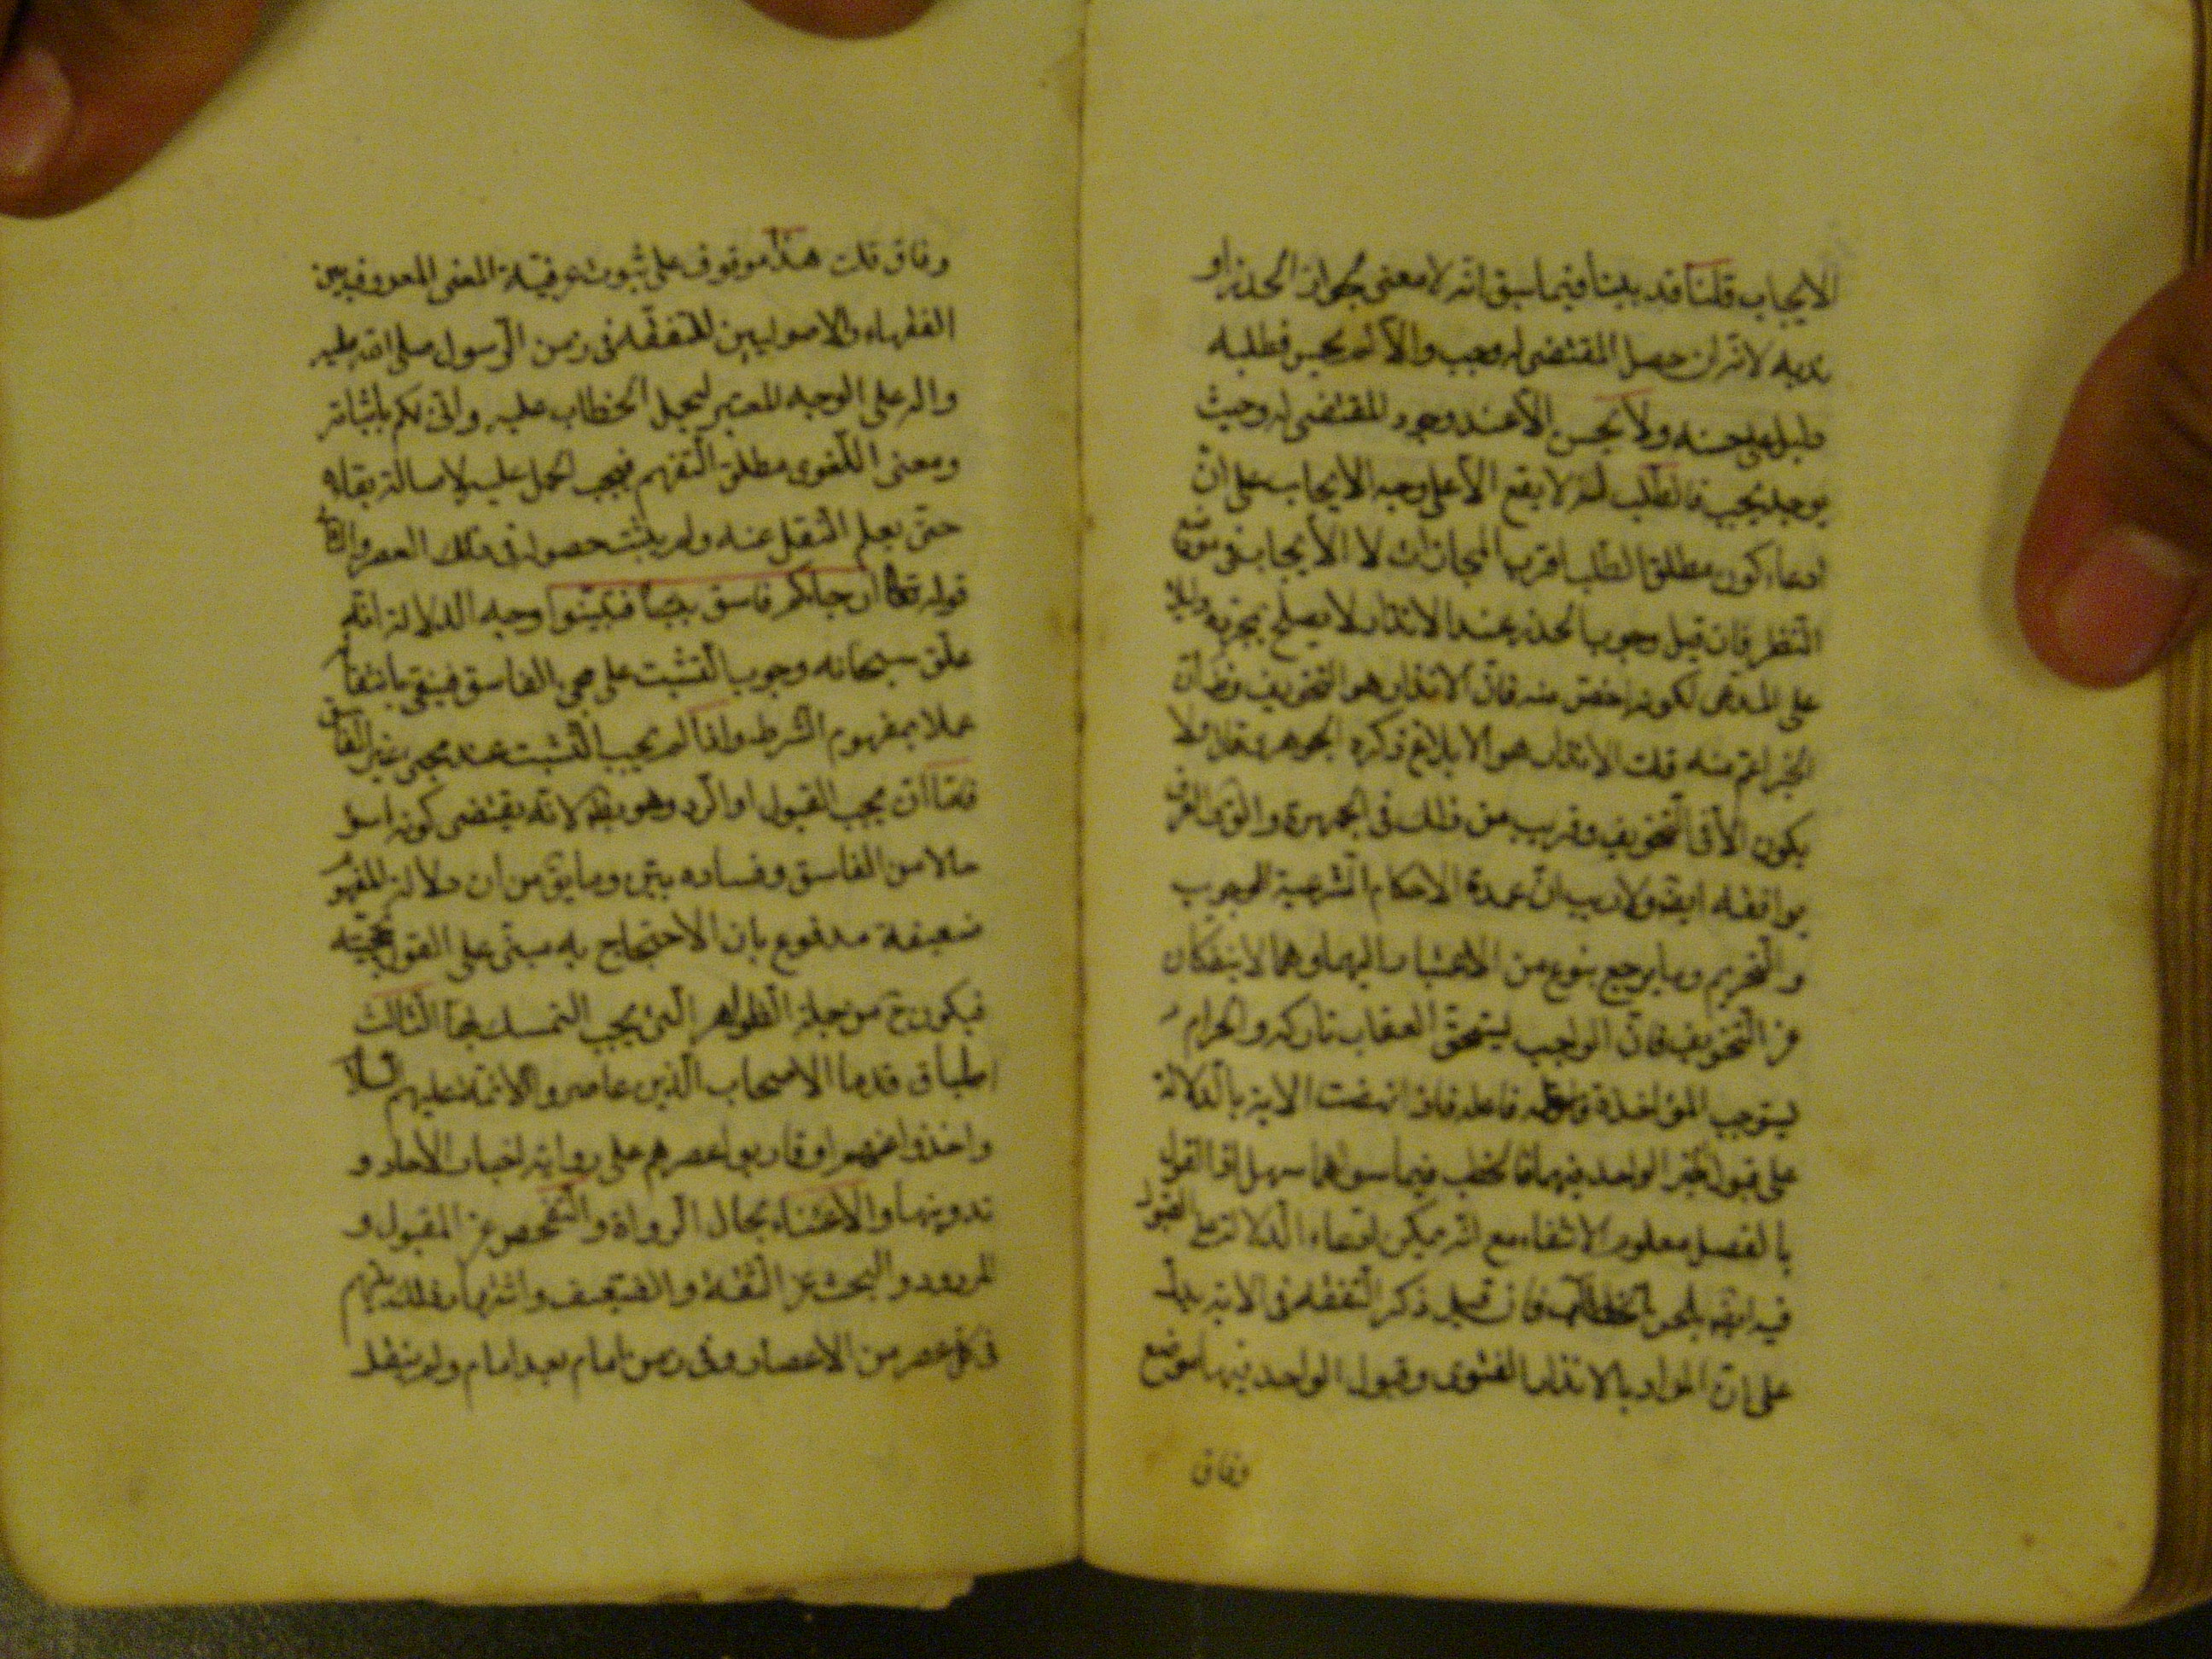 الايجاب قلنا قد بينا فيما سبق انه لا معنى لجواز الحذر او
ندبه لانه ان حصل المقتضى له وجب والا لم يحسن فطلبه
دليل على حسنه ولا يحسن الا عند وجود المقتضى له وحيث
يوجد يجب فالطلب له لا يقع الا على وجه الايجاب على ان
ادعاء كون مطلق الطلب اقرب المجازات لا الايجاب فى موضع
النظر فان قيل وجوب الحذر عند الانذار لا يصلح بمجرده دليلا
على المدعى لكونه اخص منه فان الانذار هو التخويف وظ ان
الخبر اعم منه قلت الانذار هو الابلاغ ذكره الجوهرى قال ولا
يكون الا فى التخويف وقريب من ذلك فى الجمهرة والعرف
يوافقه ايضا ولا ريب ان عمدة الاحكام الشرعية الوجوب
والتحريم وما يرجع بنوع من الاعتبار اليهما وهما لا ينفكان
عن التخويف فان الواجب يستحق العقاب تاركه والحرام
يستوجب المؤاخذة فاعله فاذا انهضت الاية بالدلالة
على قبول خبر الواحد فيهما فالخطب فيما سواهما سهل اذ القول
بالفصل معلوم الانتفاء مع انه يمكن ادعاء الدلالة على القبول
فيه ايضا بلحن الخطاب فان قيل ذكر التفقه فى الاية يدل
على ان المراد بالانذار الفتوى وقبول الواحد فيها موضع
وفاق
وفاق قلت هذا موقوف على ثبوت عرفية المعنى المعروف بين
الفقهاء والاصوليين للتفقه فى زمن الرسول صلى الله عليه
واله على الوجه المعتبر ليحمل الخطاب عليه وانى لكم باثباته
ومعنى اللغوى مطلق التفهم فيجب الحمل عليه لاصالة بقائه
حتى يعلم النقل عنه ولم يثبت حصوله فى ذلك العصر والثانى
قوله تعالى ان جاءكم فاسق بنبأ فتبينوا وجه الدلالة انه
علق سبحانه وجوب التثبت على مجئ الفاسق فينتفى بانتفائه
عملا بمفهوم الشرط واذا لم يجب التثبت عند مجئ غير الفاسق
فاما ان يجب القبول او الرد وهو بط لانه يقتضى كونه اسوء
حالا من الفاسق وفساده بين وما يق من ان دلالة المفهوم
ضعيفة مدفوع بان الاحتجاج به مبنى على القول بحجيته
فيكون ح من جملة الظواهر التى يجب التمسك بها الثالث
اطباق قدماء الاصحاب الذين عاصروا الائمة عليهم السلام
واخذوا عنهم او قاربوا عصرهم على رواية اخبار الاحاد و
تدوينها والاعتناء بحال الرواة والتفحص عن المقبول و
المردود والبحث عن الثقة والضعيف واشتهار ذلك بينهم
فى كل عصر من الاعصار وفى زمن امام بعد امام ولم ينقل